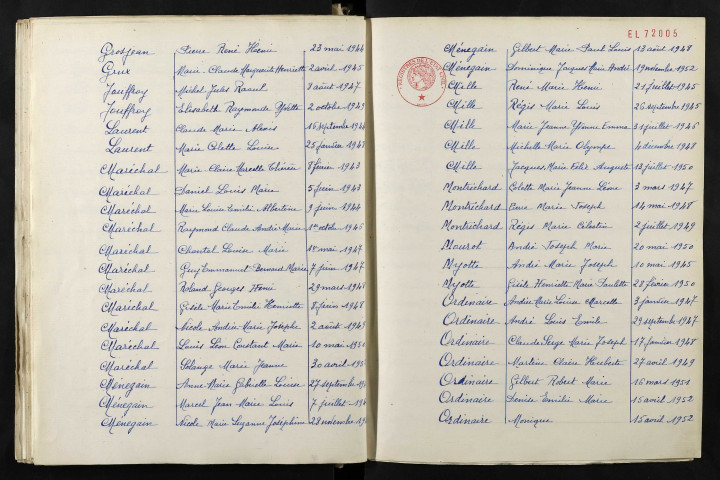 Grosjean Pierre René Henri 23 mai 1944
Grux Marie-Claude Marguerite Henriette 2 avril 1945
Jouffroy Michel Jules Raoul 7 août 1947
Jouffroy Elisabeth Raymonde Yvette 2 octobre 1949
Laurent Claude Marie Alexis 16 septembre 1944
Laurent Marie Colette Louise 25 janvier 1948
Maréchal Marie Claire Marcelle 8 février 1943
Maréchal Daniel Louis Marie 5 juin 1943
Maréchal Marie Louise Emilie Albertine 9 juin 1944
Maréchal Raymond Claude André Marie 1er octobre 1945
Maréchal Chantal Louise Marie 1er mai 1947
Maréchal Guy Emmanuel Bernard Marie 7 juin 1947
Maréchal Roland Georges Henri 29 mars 1948
Maréchal Gisèle Marie Emilie Henriette 8 juin 1948
Maréchal Nicole Andrée Marie Josephe 2 août 1949
Maréchal Louis Léon Constant Marie 10 mai 1950
Maréchal Solange Marie Jeanne 30 avril 195
Ménegain Anne-Marie Gabrielle Louise 27 septembre 19
Ménegain Marcel Jean Marie Louis 7 juillet 194
Ménegain Nicole Marie Suzanne Joséphine 28 novembre 19
EL 72005
Ménegain Gilbert Marie Paul Louis 13 août 1948
Ménegain Dominique Jacques Marie André 19 novembre 1952
Mille René Marie Henri 21 juillet 1945
Mille Régis Marie Louis 26 septembre 1945
Mille Marie Jeanne Yvonne Emma 31 juillet 1946
Mille Michelle Marie Olympe 4 décembre 1948
Mille Jacques Marie Félix Auguste 13 juillet 1950
Montrichard Colette Marie Jeanne 3 mars 1947
Montrichard Marie Joseph 14 mai 1948
Montrichard Régis Marie Célestin 2 juillet 1949
Mourot André Joseph Marie 20 mai 1950
Myotte André Marie Joseph 10 mai 1945
Myotte Cécile Henriette Marie Paulette 28 février 1950
Ordinaire Andrée Marie Louise Marcelle 3 janvier 1947
Ordinaire André Louis Emile 29 septembre 1947
Ordinaire Claude Serge Marie Joseph 17 janvier 1948
Ordinaire Martine Claire 27 avril 1949
Ordinaire Gilbert Robert Marie 16 mars 1951
Ordinaire Denise Emilie Marie 15 avril 1952
Ordinaire Monique 15 avril 1952